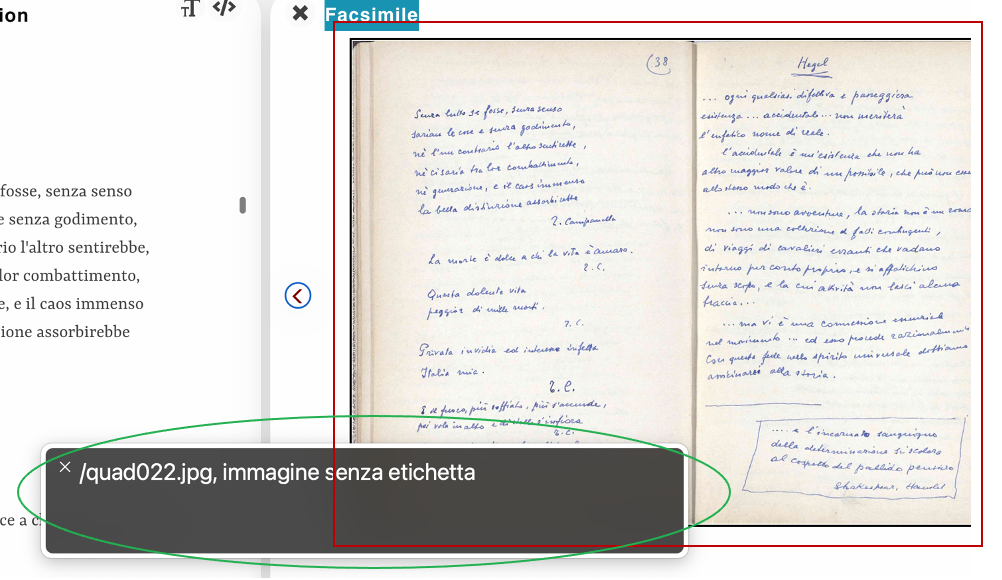 ion
TT </>
Facsimile
fosse, senza senso
e senza godimento,
rio l'altro sentirebbe,
lor combattimento,
e, e il caos immenso
ione assorbirebbe
ce a c
(38
Senza tutto se fosse, senza senso
sarian le cose e senza godimento,
nè l'un contrario l'altro sentirebbe,
nè ci saria tra lor combattimento,
nè generazione, e il caos immenso
la bella distinzione assorbirebbe
T. Campanella
La morte è dolce a chi la vita è amara.
T. C.
Questa dolente vita
peggior di mille morti.
T. C.
Privata invidia ed interesse infetta
Italia mia.
T. C.
E il fuoco, più soffiato, più s'accende,
poi vola in alto e di stelle s'infiora
T. C.
Hegel
... ogni qualsiasi difettiva e passeggiera
esistenza ... accidentale ... non meriterà
l'enfatico nome di reale.
l'accidentale è un'esistenza che non ha
altro maggior valore di un possibile, che può non
allo stesso modo che è.
... non sono avventure, la storia non è un
non sono una collezione di fatti contingenti,
di viaggi di cavalieri erranti che vadano
intorno per conto proprio, e si affatichino
senza scopo, e la cui attività non lasci alcuna
traccia...
... ma vi è una connessione
nel movimento ... ed esso procede razionalmente
Con questa fede nello spirito universale dobbiamo
avvicinarci alla storia.
.... e l'incarnato sanguigno
della determinazione si scolora
al cospetto del pallido pensiero
Shakespear, Hamlet
× /quad022.jpg, immagine senza etichetta